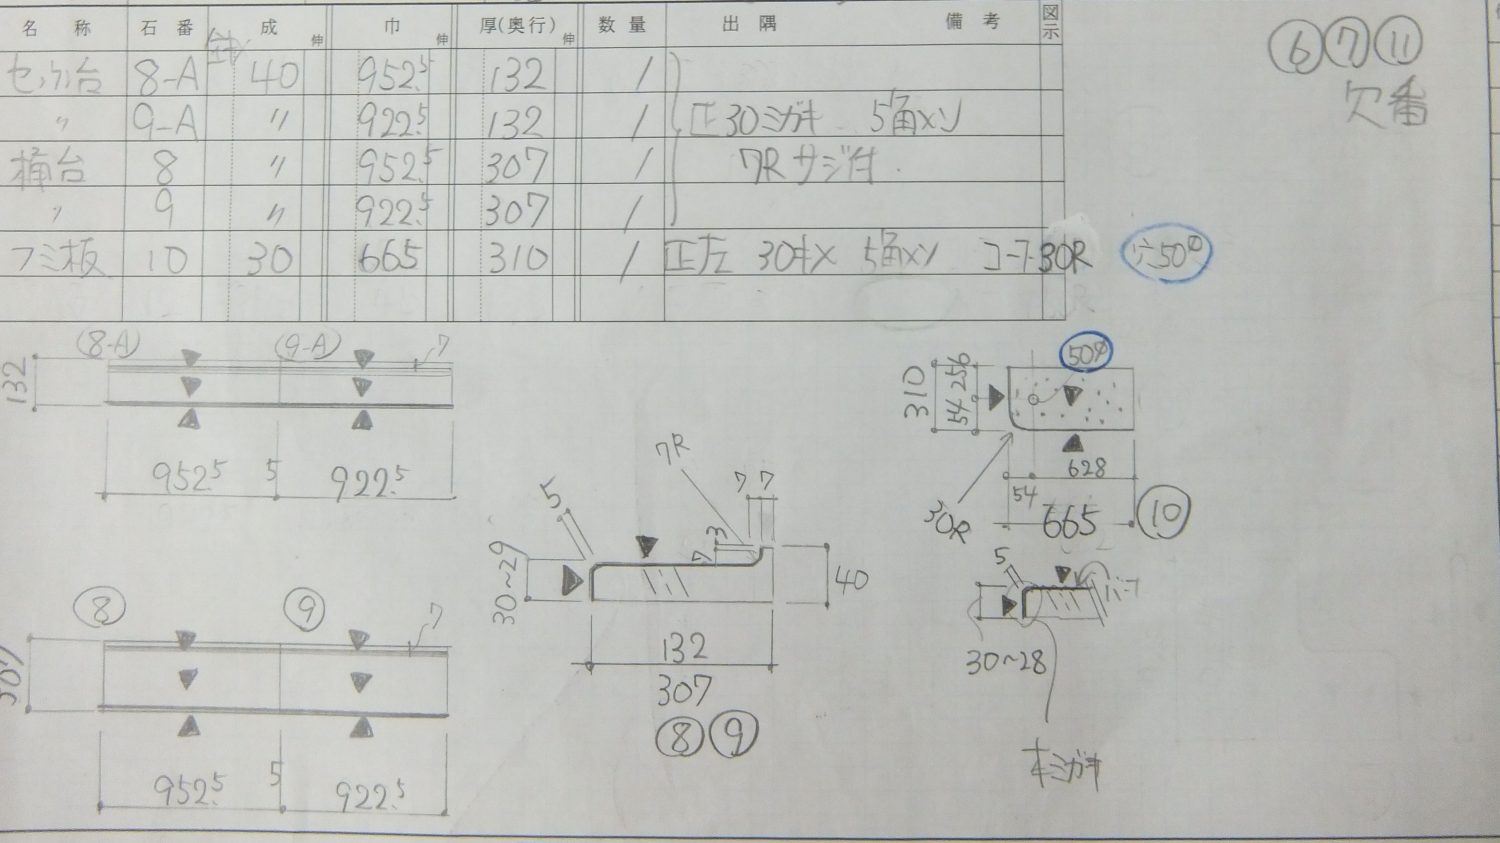 名称 石番 成 伸 巾 伸 厚(奥行) 伸 数量 出隅 備考 図示
セッケン台 8-A 40 952.5 132 1
〃 9-A 〃 922.5 132 1 正30ミガキ 5角メン
桶台 8 〃 952.5 307 1 7Rサジ付
〃 9 〃 922.5 307 1
フミ板 10 30 665 310 1 正左 30本メ 5角メン コーナー30R 穴50φ
⑥⑦⑪
欠番
8-A 9-A 7
132
952.5 5 922.5
⑧ ⑨ 7
307
952.5 5 922.5
7R
5 7 7
3
7
30~29
40
132
307
⑧⑨
50φ
310 54 256
628
54
30R 665 ⑩
5 バーナ
30~28
本ミガキ